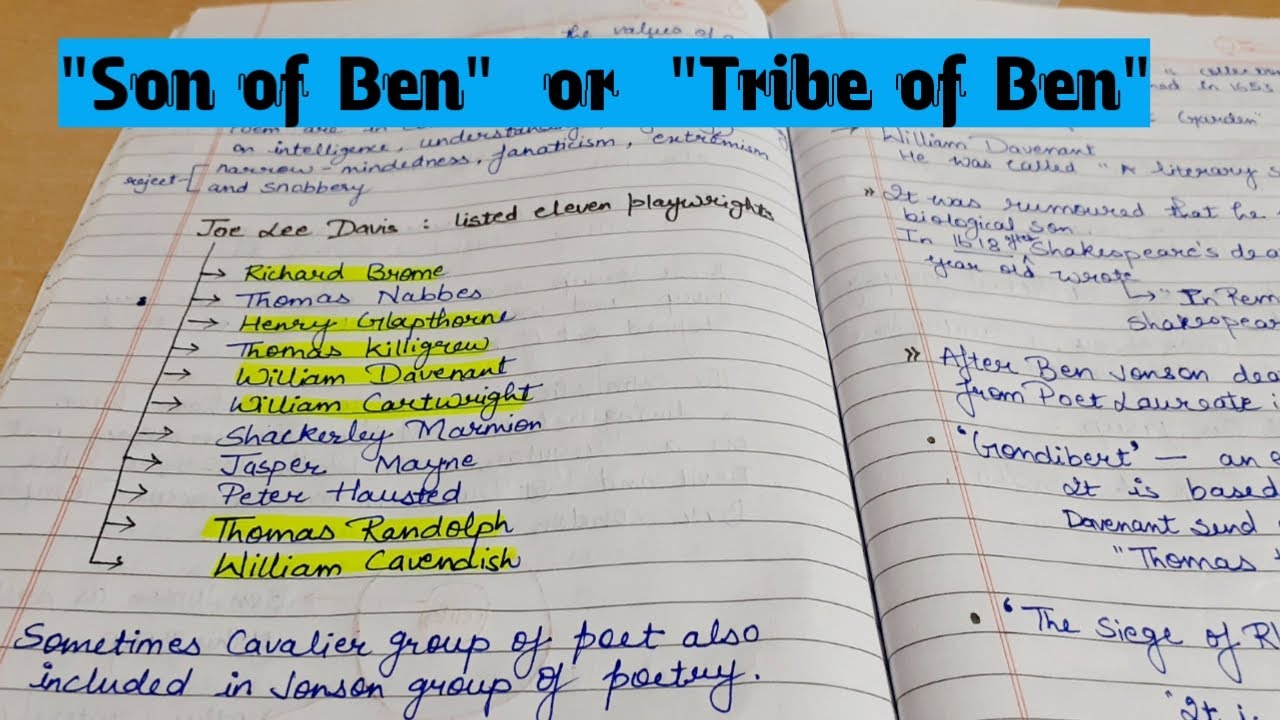 "Son of Ben" or "Tribe of Ben"
the values of a
poem are in
on intelligence, understanding
reject narrow-mindedness, fanaticism, extremism
and snobbery
Joe Lee Davis : listed eleven playwrights
Richard Brome
Thomas Nabbes
Henry Glapthorne
Thomas Killigrew
William Davenant
William Cartwright
Shackerley Marmion
Jasper Mayne
Peter Hausted
Thomas Randolph
William Cavendish
Sometimes Cavalier group of poet also
included in Jonson group of poetry.
is collec
in 1653
Garden
William Davenant
He was called "A literary s
It was rumoured that he
biological son.
In 1618 after Shakespeare's dea
year old wrote
"In Rem
Shakespear
After Ben Jonson dea
from Poet Laureate i
'Gondibert' — an e
It is based
Davenant send
"Thomas
'The Siege of Rh
"It is